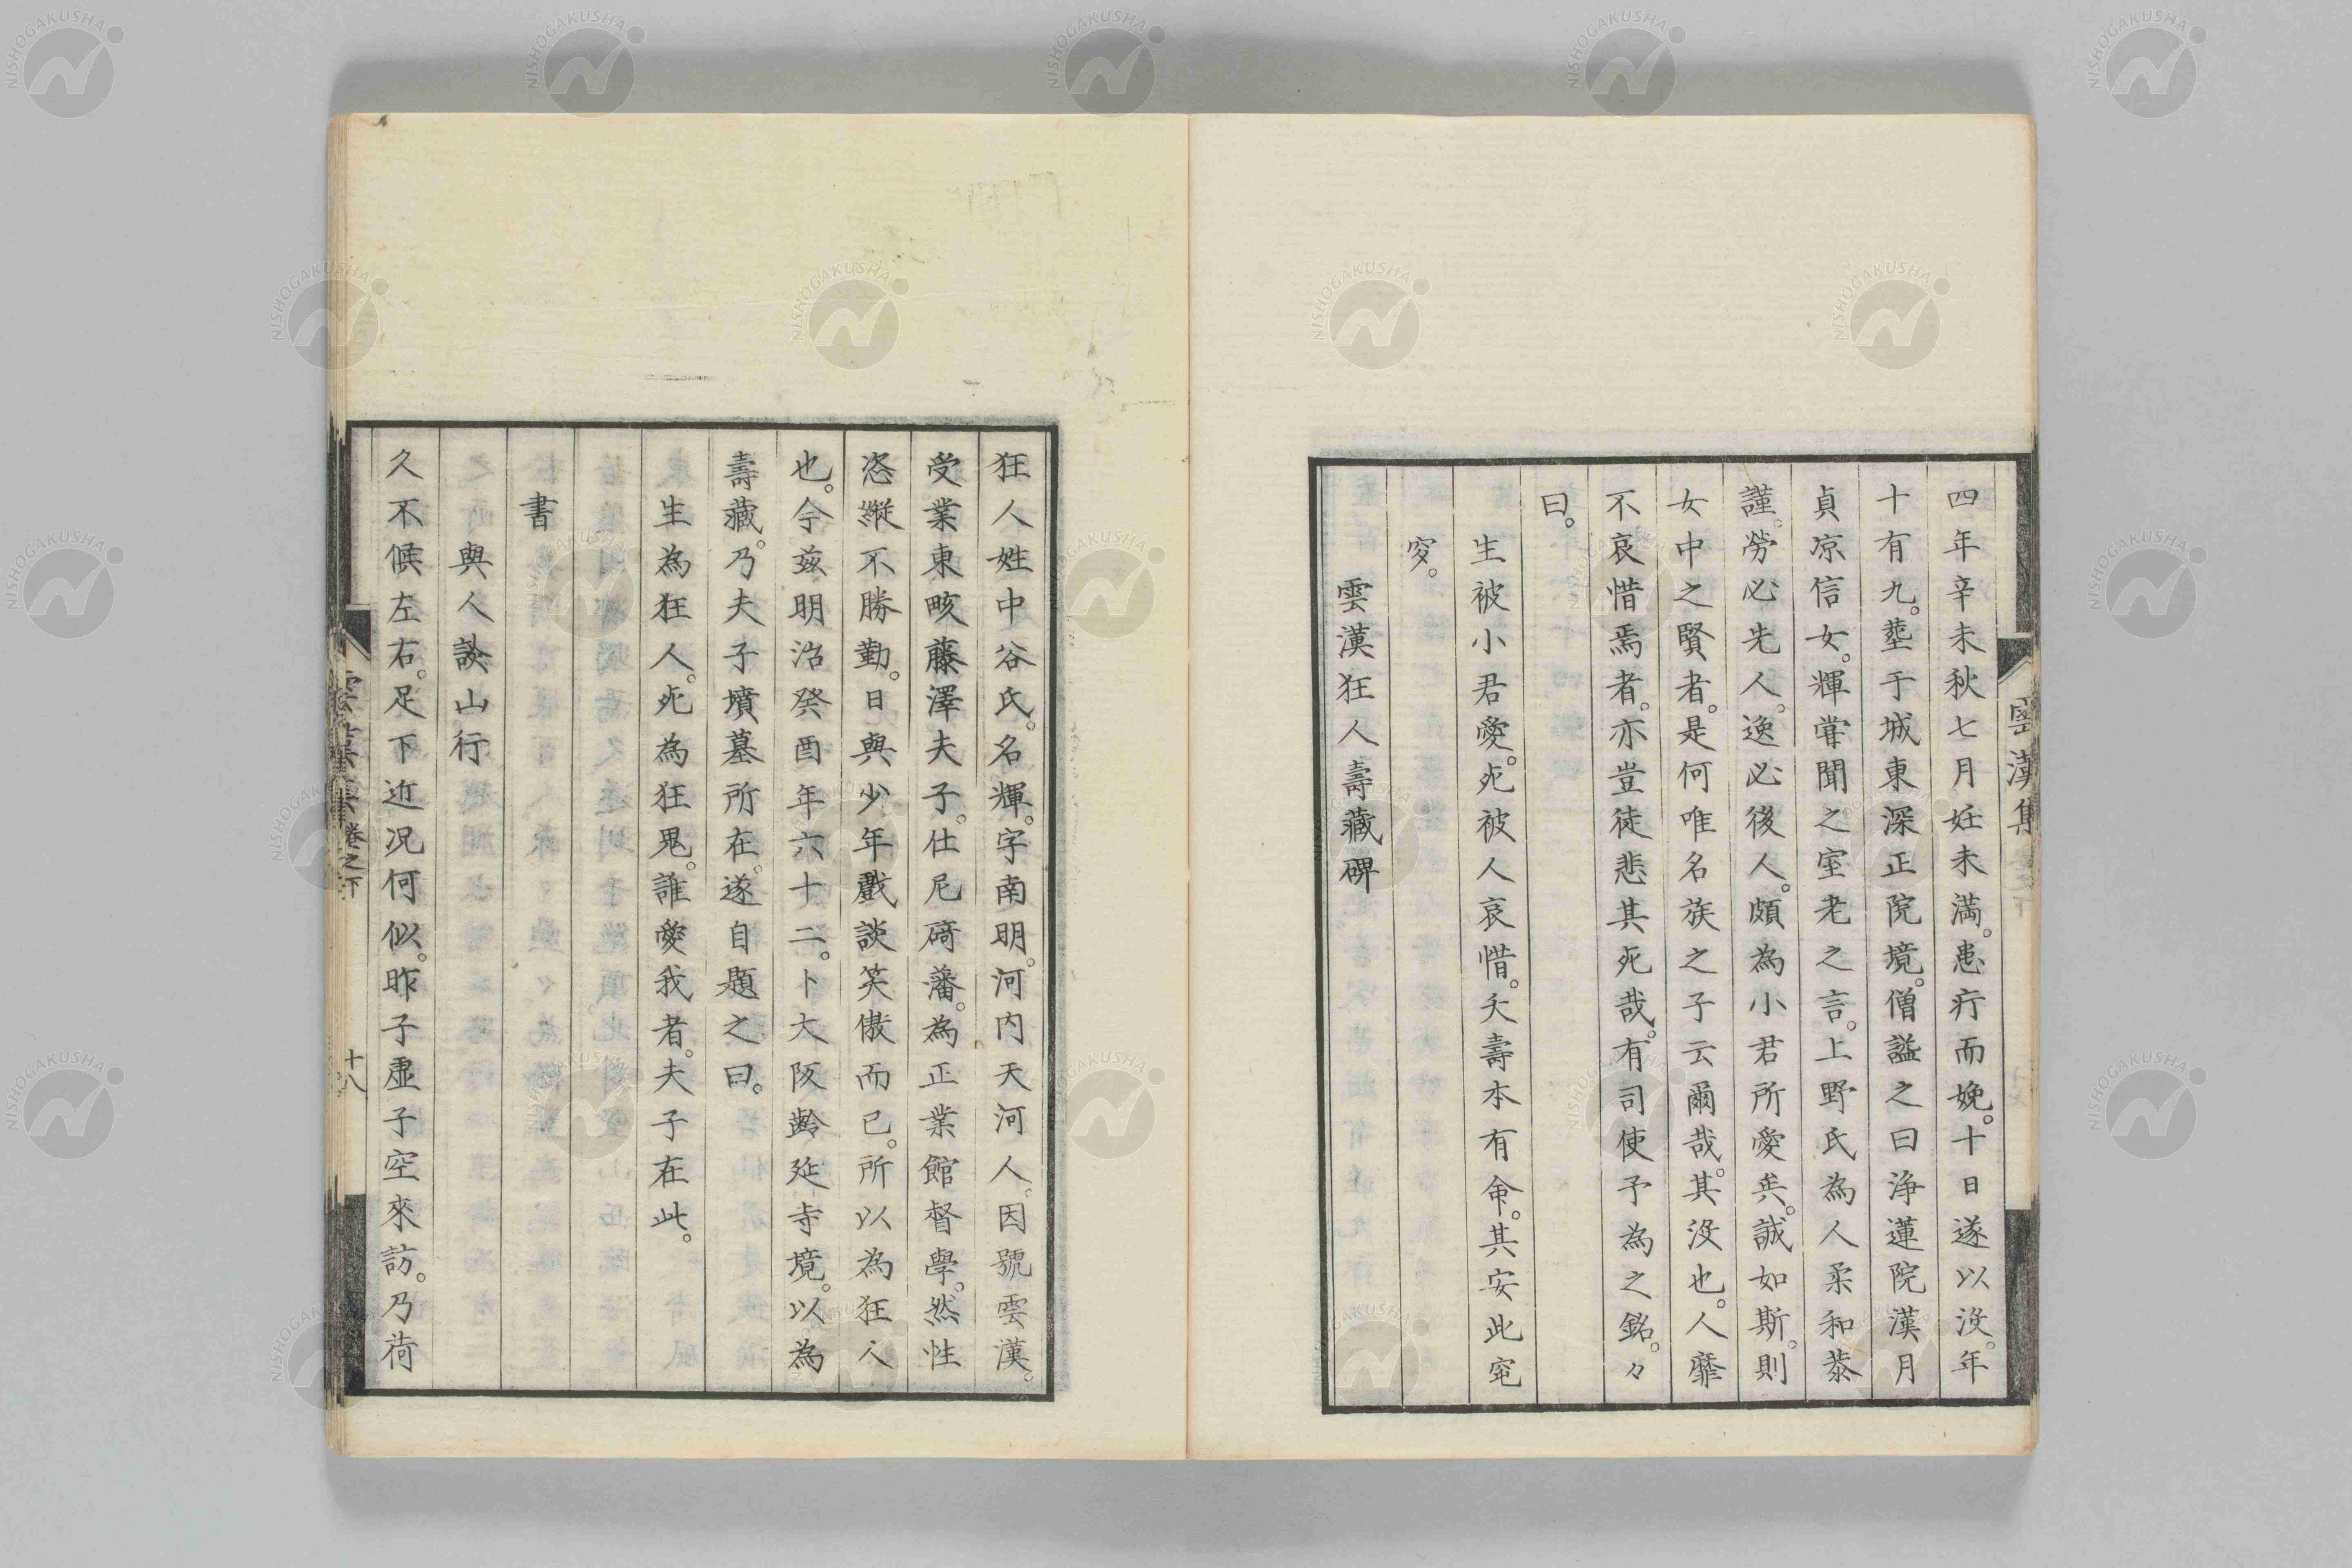 四年辛未秋七月妊未滿。患疔而娩。十日遂以沒。年
十有九。塟于城東深正院境。僧謚之曰浄蓮院漢月
貞凉信女。輝甞聞之室老之言。上野氏為人柔和恭
謹。勞必先人。逸必後人。頗為小君所愛矣。誠如斯。則
女中之賢者。是何唯名族之子云爾哉。其沒也。人靡
不哀惜焉者。亦豈徒悲其死哉。有司使予為之銘。々
曰。
生被小君愛。死被人哀惜。夭壽本有命。其安此窀
穸。
雲漢狂人壽藏碑
狂人姓中谷氏。名輝。字南明。河内天河人。因號雲漢。
受業東畡藤澤夫子。仕尼碕藩。為正業館督學。然性
恣縱不勝勤。日與少年戲談笑傲而已。所以為狂人
也。今玆明治癸酉年六十二。卜大阪齡延寺境。以為
壽藏。乃夫子墳墓所在。遂自題之曰。
生為狂人。死為狂鬼。誰愛我者。夫子在此。
書
與人談山行
久不候左右。足下近况何似。昨子虛子空來訪。乃荷
雲漢集
卷之下
十八